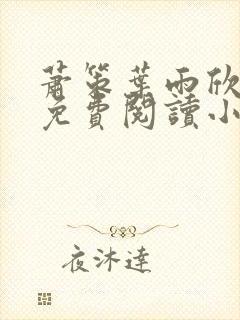 蕭策葉雨欣
免費閱讀小
夜沐達